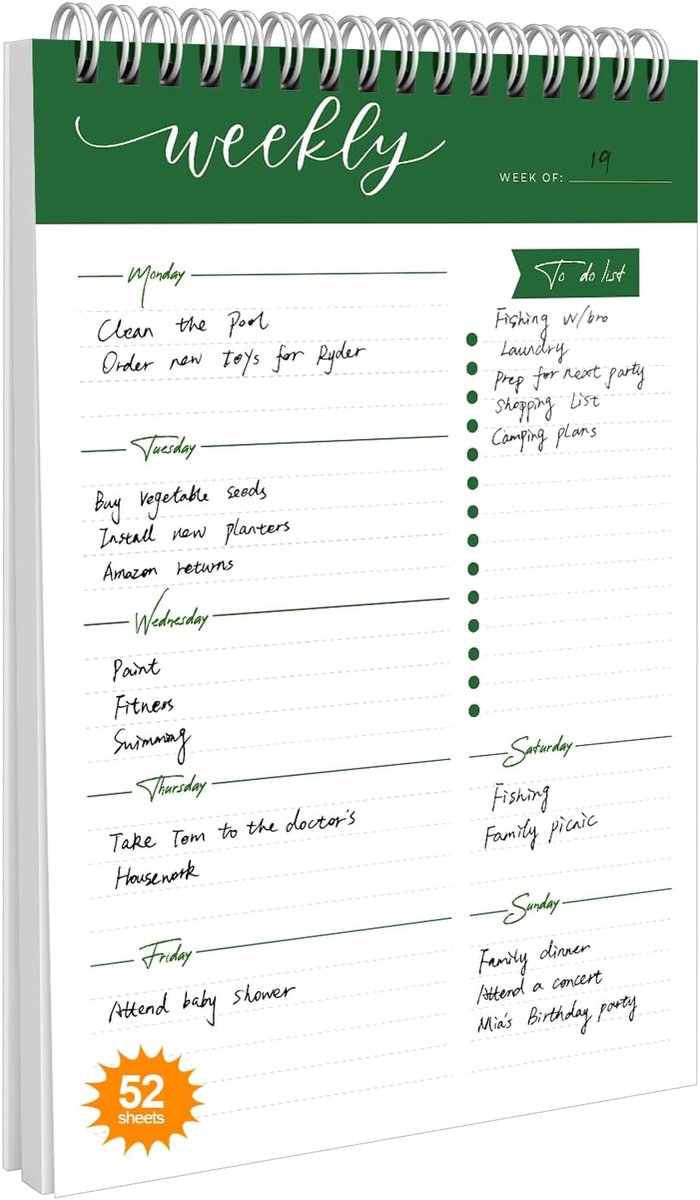 weekly
WEEK OF: 19
Monday
Clean the Pool
Order new toys for Ryder
Tuesday
Buy vegetable seeds
Install new planters
Amazon returns
Wednesday
Paint
Fitness
Swimming
Thursday
Take Tom to the doctor's
Housework
Friday
Attend baby shower
To do list
Fishing w/bro
Laundry
Prep for next party
Shopping List
Camping plans
Saturday
Fishing
Family picnic
Sunday
Family dinner
Attend a concert
Mia's Birthday party
52
sheets